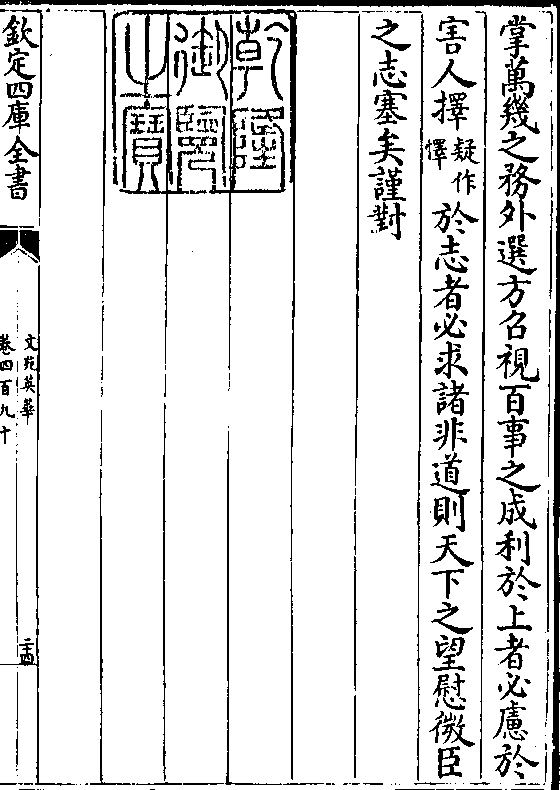 掌萬幾之務外選方召視百事之成利於上者必慮於
害人擇疑作懌於志者必求諸非道則天下之望慰微臣
之志塞矣謹對
乾隆御覽之寶
欽定四庫全書
文苑英華
卷四百九十
二十四